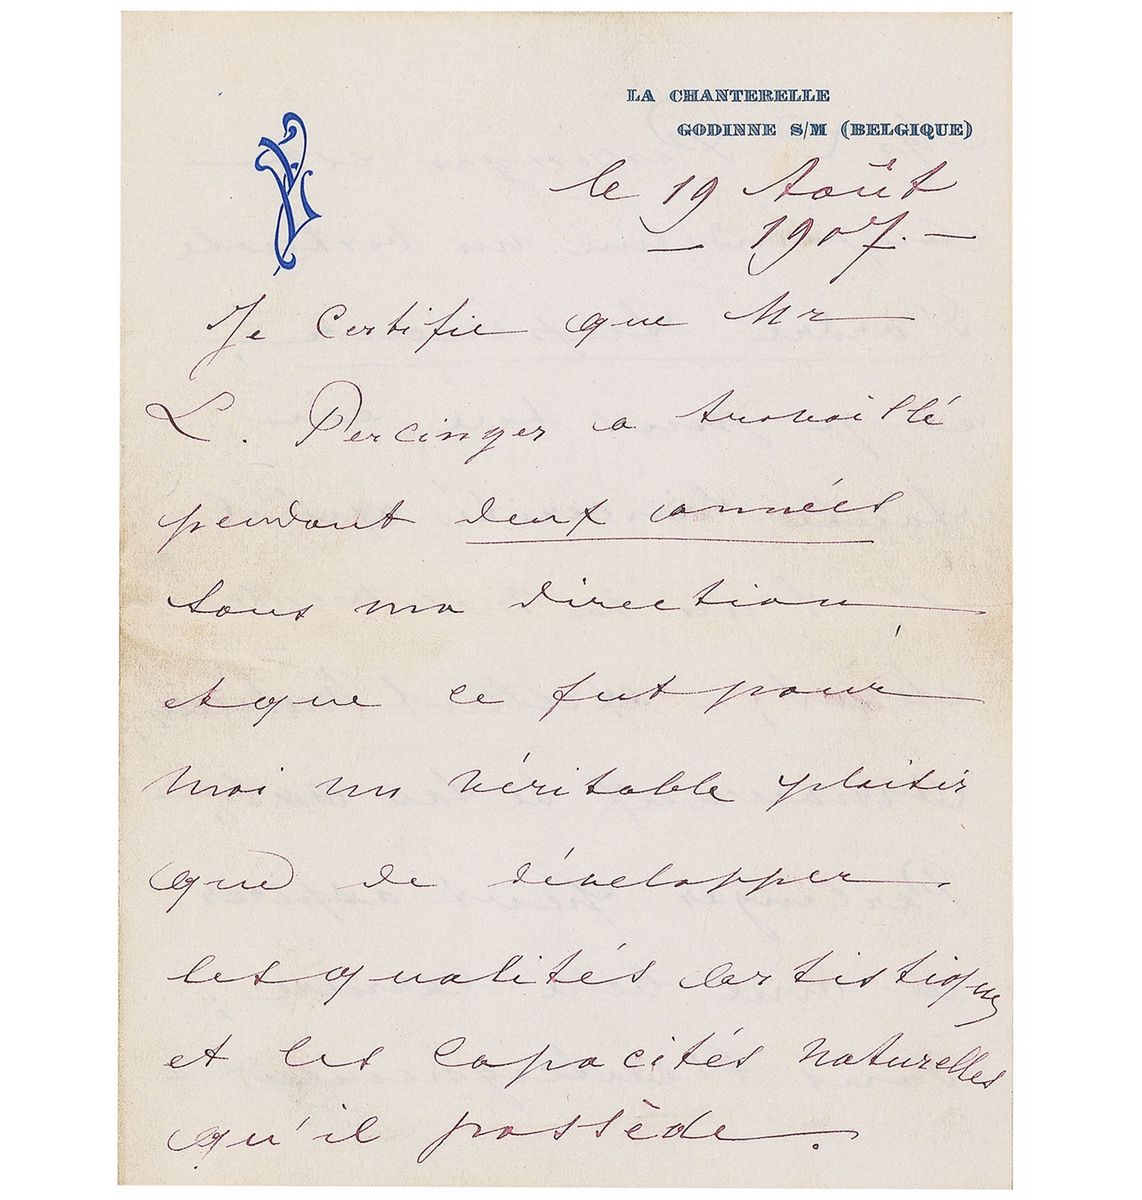 LA CHANTERELLE
GODINNE S/M (BELGIQUE)
le 19 Août
— 1907. —
Je certifie que Mr
L. Persinger a travaillé
pendant deux années
sous ma direction
et que ce fut pour
moi un véritable plaisir
que de développer
les qualités artistiques
et les capacités naturelles
qu'il possède.